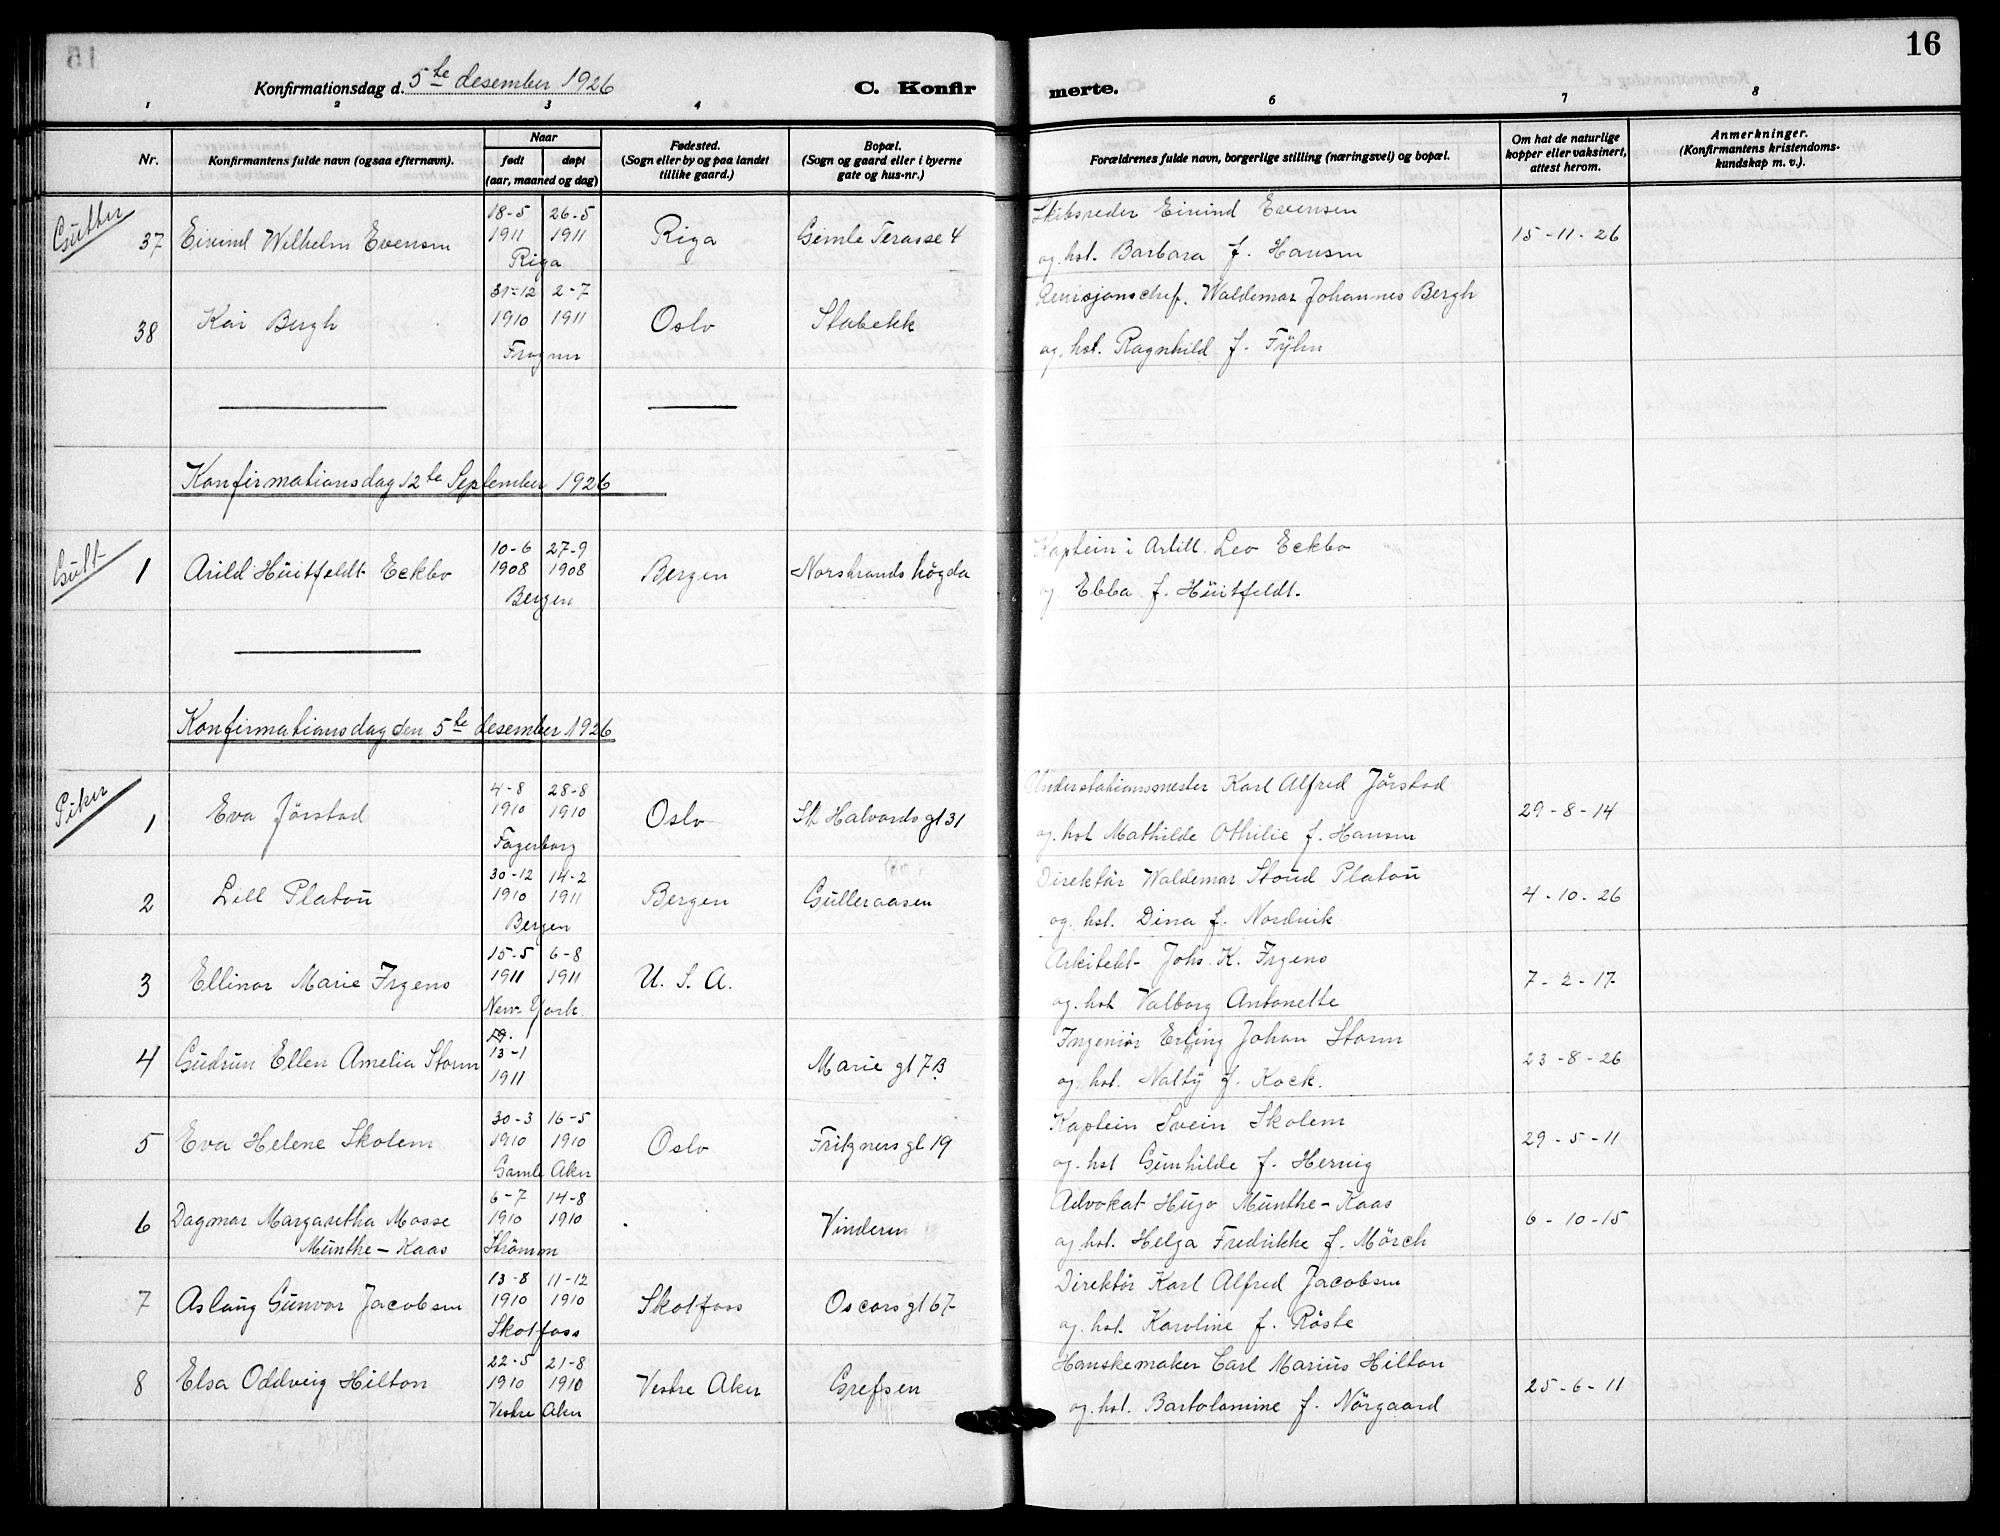 16
Konfirmationsdag d. 5te desember 1926 C. Konfirmerte.
1 2 3 4 6 7 8
Nr.
Konfirmantens fulde navn (ogsaa efternavn).
Naar
født døpt
(aar, maaned og dag)
Fødested.
(Sogn eller by og paa landet
tillike gaard.)
Bopæl.
(Sogn og gaard eller i byerne
gate og hus-nr.)
Forældrenes fulde navn, borgerlige stilling (næringsvei) og bopæl.
Om hat de naturlige
kopper eller vaksinert,
attest herom.
Anmerkninger.
(Konfirmantens kristendoms-
kundskap m. v.).
Gutter
37 Eivind Wilhelm Evensen
18-5 26-5
1911 1911
Riga
Riga
Gimle Terasse 4
Skibsreder Eivind Evensen
og hst. Barbara f. Hansen
15-11-26
38 Kai Bergh
31-12 2-7
1910 1911
Frogner
Oslo
Stabekk
Revisjonschef. Waldemar Johannes Bergh
og hst. Ragnhild f. Fyhn
Konfirmationsdag 12te September 1926
Gutt
1 Arild Huitfeldt Eckbo
10-6 27-9
1908 1908
Bergen
Bergen
Norstrands högda
Kaptein i Artill. Leo Eckbo
og Ebba f. Huitfeldt.
Konfirmationsdag den 5te desember 1926
Piker
1 Eva Jörstad
4-8 28-8
1910 1910
Fagerborg
Oslo
St. Halvards gt 31
Understationsmester Karl Alfred Jörstad
og hst Mathilde Othilie f. Hansen
29-8-14
2 Lell Platou
30-12 14-2
1910 1911
Bergen
Bergen
Gulleraasen
Direktör Waldemar Stoud Platou
og hst. Dina f. Nordvik
4-10-26
3 Ellinor Marie Irgens
15-5 6-8
1911 1911
New-York
U. S. A.
Arkitekt Johs. K. Irgens
og hst Valborg Antonette
7-2-17
4 Gudrun Ellen Amelia Storm
13-1
1911
Marie gt 7B
Ingeniør Erling Johan Storm
og hst. Nally f. Kock.
23-8-26
5 Eva Helene Skolem
30-3 16-5
1910 1910
Gamle Aker
Oslo
Fritzners gt 19
Kaptein Svein Skolem
og hst Gunhilde f. Hernig
29-5-11
6 Dagmar Margaretha Mosse
Munthe-Kaas
6-7 14-8
1910 1910
Strömmen
Vinderen
Advokat Hugo Munthe-Kaas
og hst. Helga Fredrikke f. Mörch
6-10-15
7 Aslaug Gunvor Jacobsen
13-8 11-12
1910 1910
Skotfoss
Skotfoss
Oscars gt 67
Direktör Karl Alfred Jacobsen
og hst. Karoline f. Röske
8 Elsa Oddveig Hilton
22-5 21-8
1910 1910
Vestre Aker
Vestre Aker
Grefsen
Hanskemaker Carl Marius Hilton
og hst. Bartolomine f. Nörgaard
25-6-11